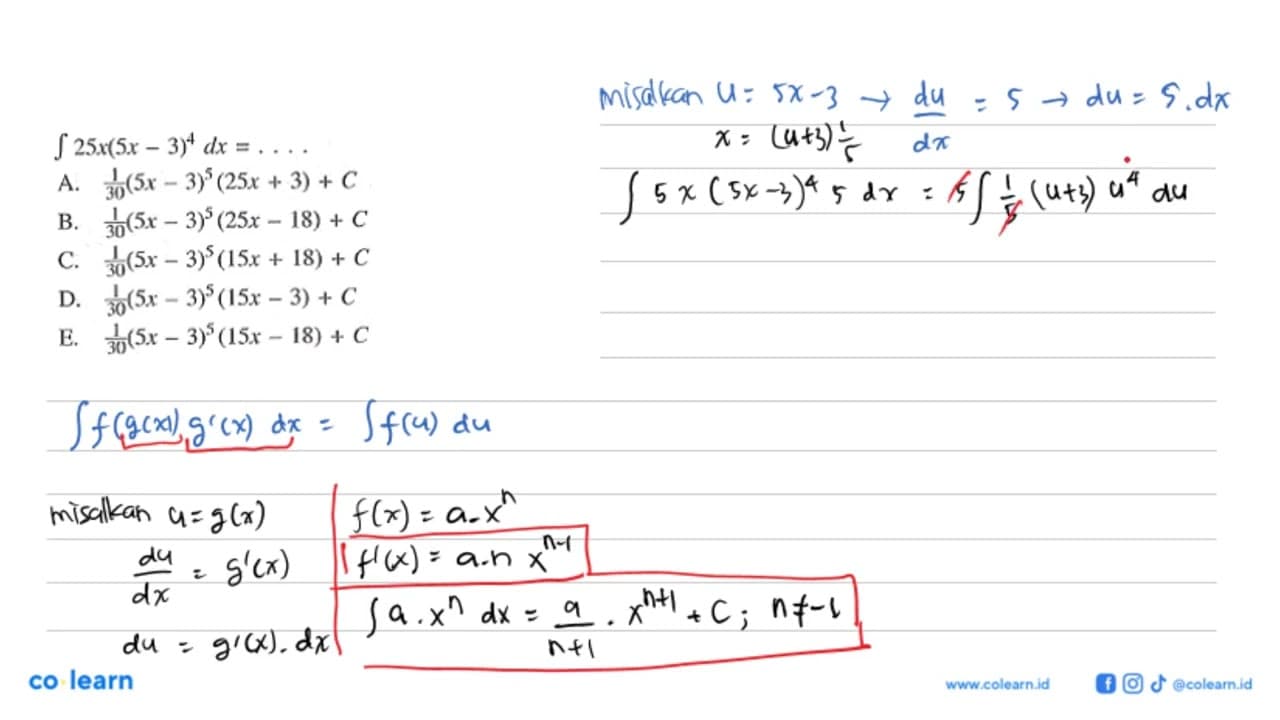 ∫ 25x(5x − 3)⁴ dx = . . . .
A. 1/30(5x − 3)⁵(25x + 3) + C
B. 1/30(5x − 3)⁵(25x − 18) + C
C. 1/30(5x − 3)⁵(15x + 18) + C
D. 1/30(5x − 3)⁵(15x − 3) + C
E. 1/30(5x − 3)⁵(15x − 18) + C
misalkan u = 5x-3 → du/dx = 5 → du = 5.dx
x = (u+3) 1/5
∫ 5x (5x-3)⁴ 5 dx = 5 ∫ 1/5 (u+3) u⁴ du
∫ f(g(x)) g'(x) dx = ∫ f(u) du
misalkan u = g(x)
du/dx = g'(x)
du = g'(x). dx
f(x) = a.xⁿ
f'(x) = a.n xⁿ⁻¹
∫ a.xⁿ dx = a/n+1 . xⁿ⁺¹ + C; n ≠ -1
co·learn
www.colearn.id
@colearn.id